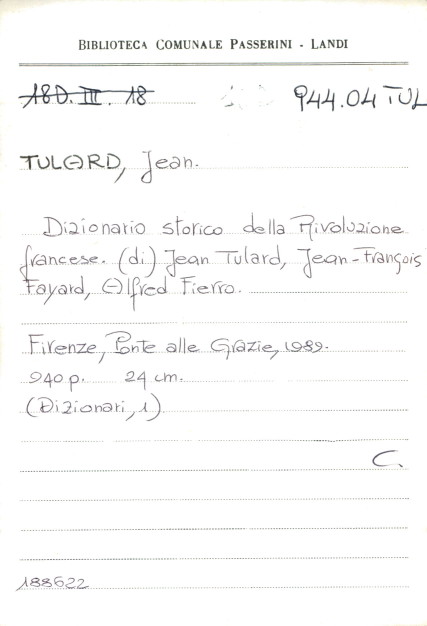 BIBLIOTECA COMUNALE PASSERINI - LANDI
18D.III.18 944.04 TUL
TULARD, Jean.
Dizionario storico della Rivoluzione
francese. (di) Jean Tulard, Jean-François
Fayard, Alfred Fierro.
Firenze, Ponte alle Grazie, 1989.
940 p. 24 cm.
(Dizionari, 1)
C.
188622